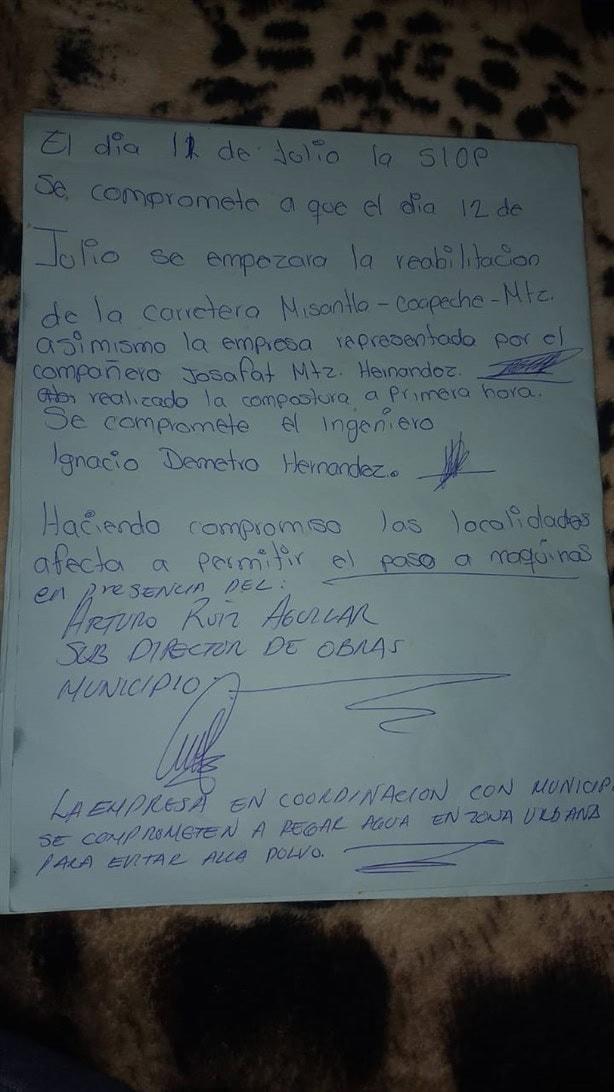 El dia 11 de Julio la SIOP
Se compromete a que el dia 12 de
Julio se empezara la reabilitacion
de la carretera Misantla - Coapeche - Mtz.
asimismo la empresa representada por el
compañero Josafat Mtz. Hernandez.
realizado la compostura a primera hora.
Se compromete el ingeniero
Ignacio Demetro Hernandez.
Haciendo compromiso las localidades
afecta a permitir el paso a maquinas
en PRESENCIA DEL:
ARTURO RUIZ AGUILAR
SUB DIRECTOR DE OBRAS
MUNICIPIO
LA EMPRESA EN COORDINACION CON MUNICIPI
SE COMPROMETEN A REGAR AGUA EN ZONA URBANA
PARA EVITAR POLVO.